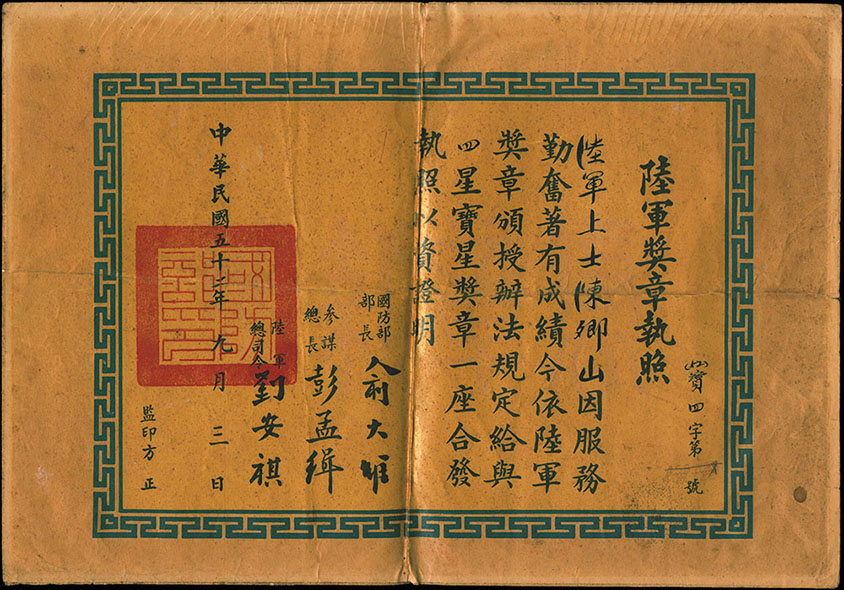 陸軍獎章執照
寶四字第 號
陸軍上士陳卿山因服務
勤奮著有成績今依陸軍
獎章頒授辦法規定給與
四星寶星獎章一座合發
執照以資證明
國防部
部長 俞大維
參謀
總長 彭孟緝
陸軍
總司令 劉安祺
中華民國五十二年九月三日
監印方正